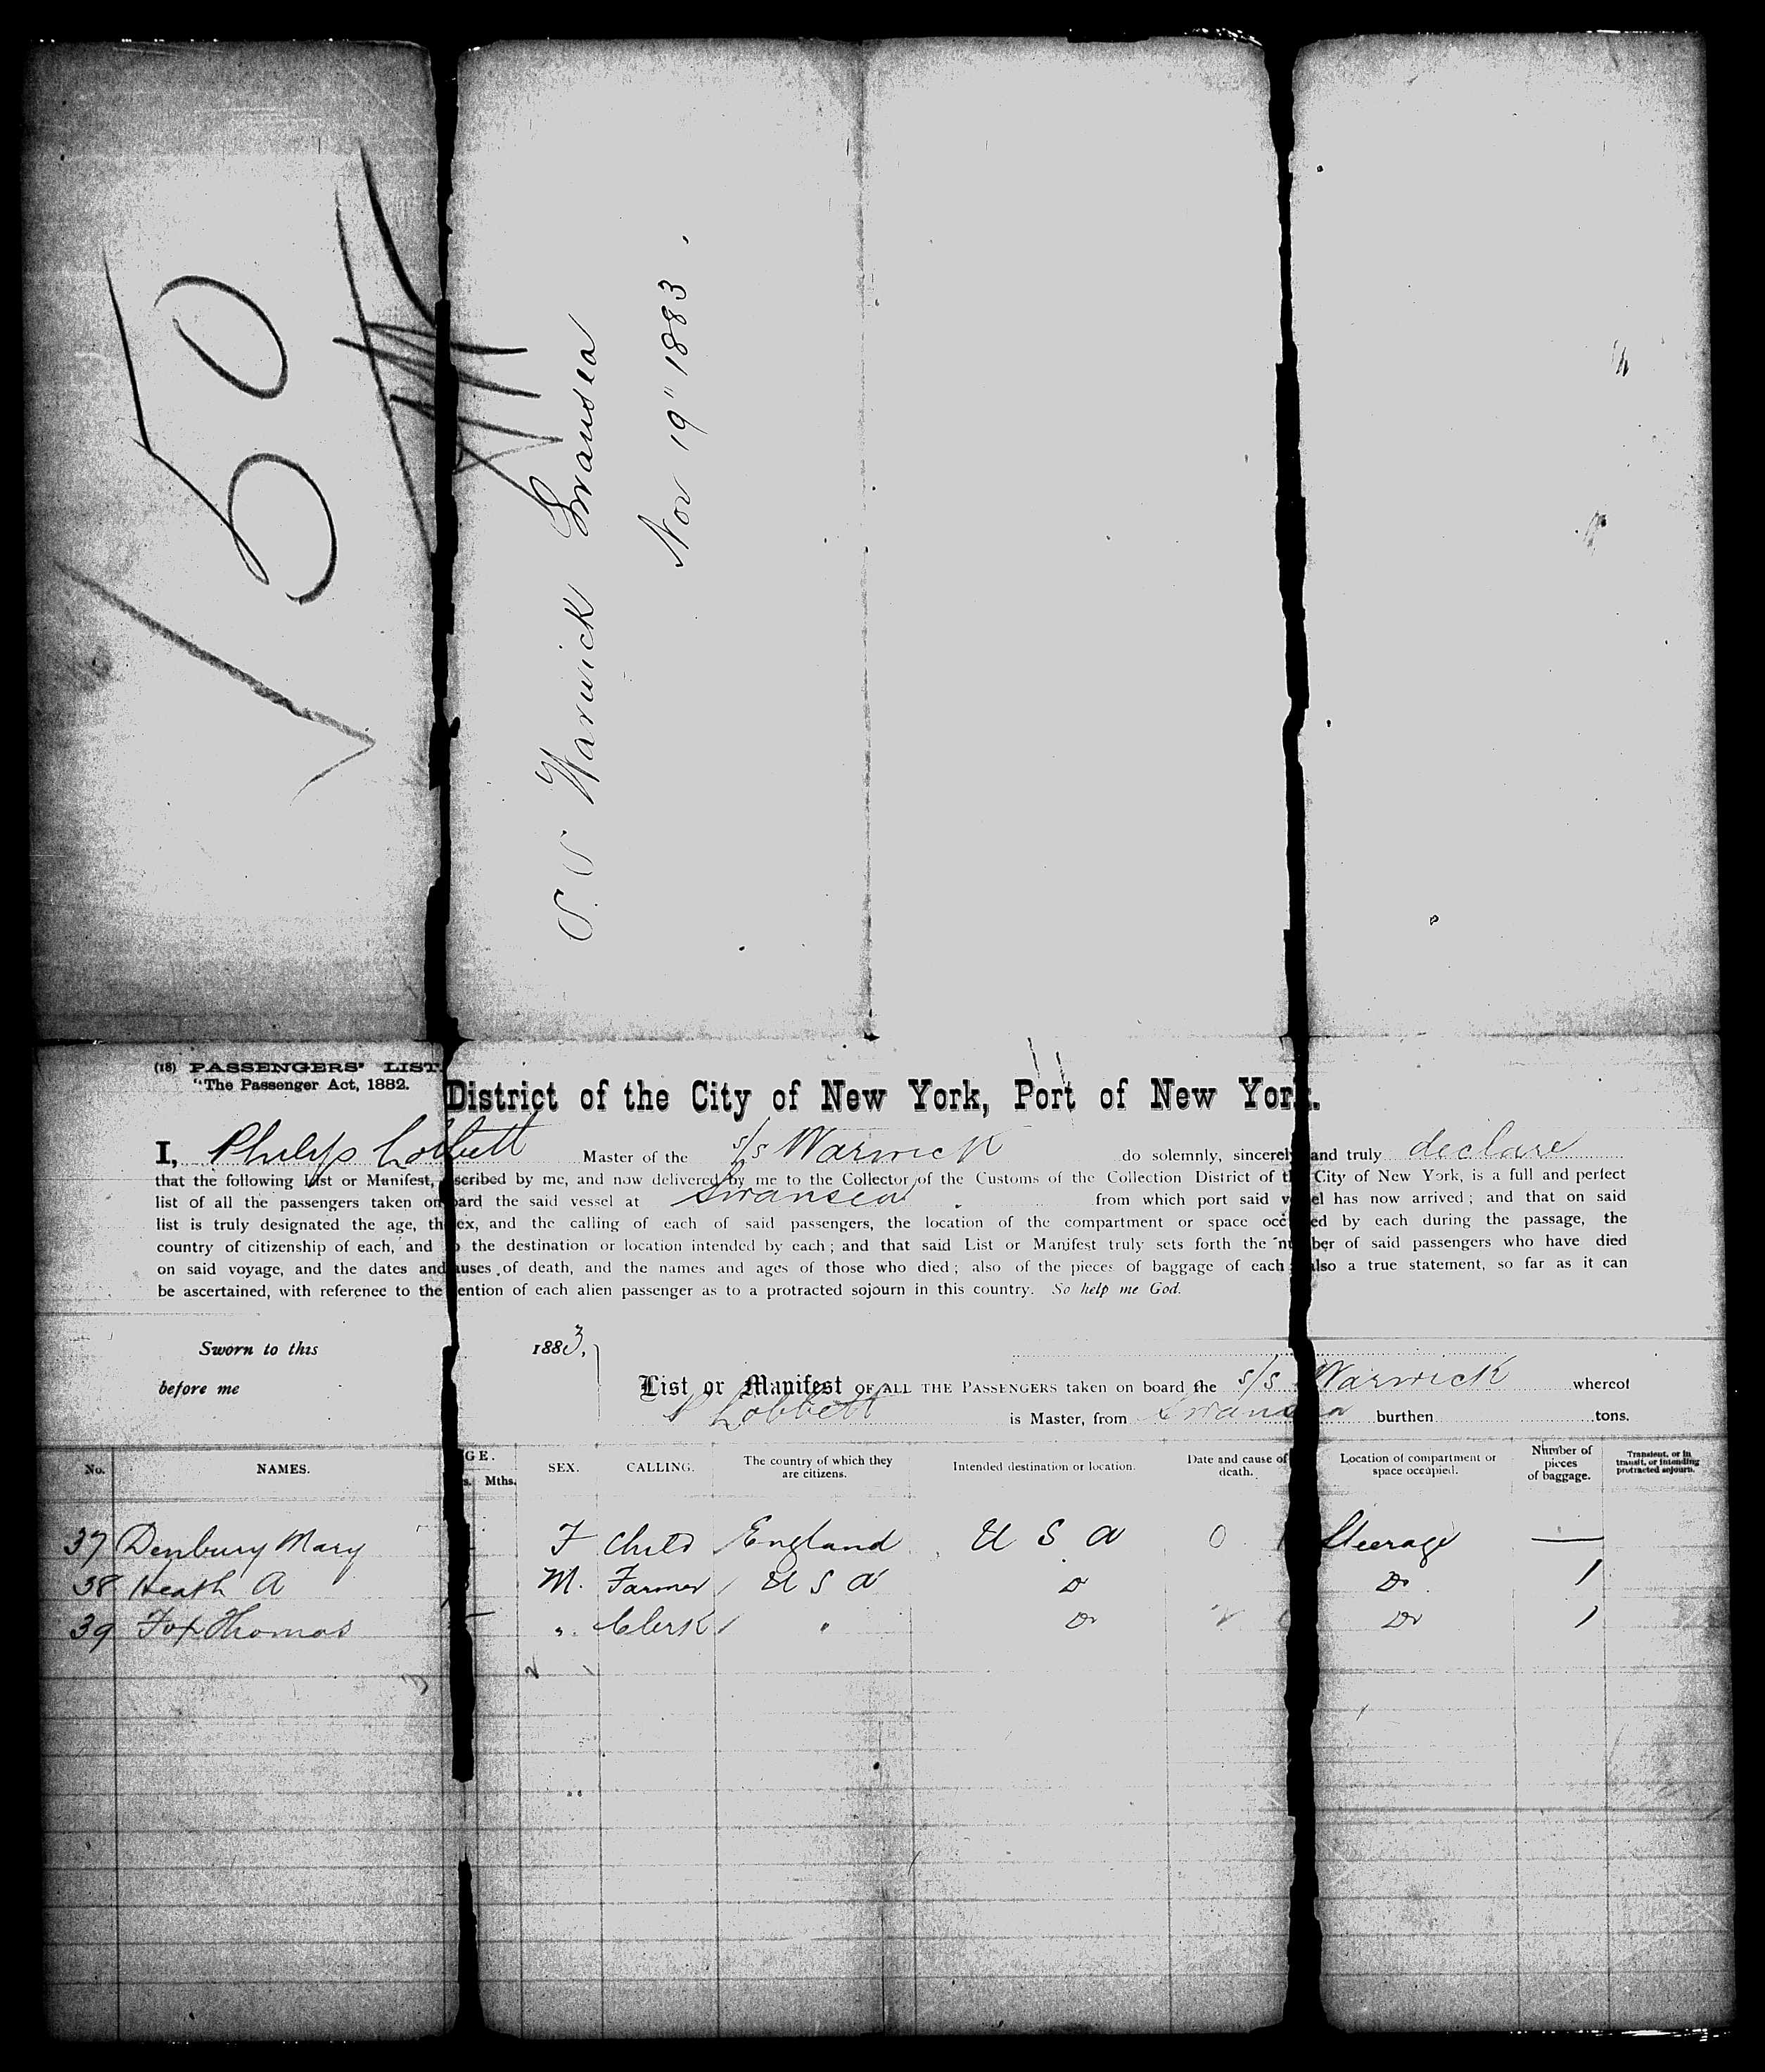 150
S. S. Warwick Swansea
Nov 19" 1883.
(18) PASSENGERS' LIST.
"The Passenger Act, 1882.
District of the City of New York, Port of New York.
I, Philip Lobbett Master of the s/s Warwick do solemnly, sincerely and truly declare
that the following List or Manifest, scribed by me, and now delivered by me to the Collector of the Customs of the Collection District of the City of New York, is a full and perfect
list of all the passengers taken on oard the said vessel at Swansea from which port said v el has now arrived; and that on said
list is truly designated the age, th ex, and the calling of each of said passengers, the location of the compartment or space occ ed by each during the passage, the
country of citizenship of each, and o the destination or location intended by each; and that said List or Manifest truly sets forth the nu ber of said passengers who have died
on said voyage, and the dates and auses of death, and the names and ages of those who died; also of the pieces of baggage of each also a true statement, so far as it can
be ascertained, with reference to the ention of each alien passenger as to a protracted sojourn in this country. So help me God.
Sworn to this 1883,
before me
List or Manifest OF ALL THE PASSENGERS taken on board the s/s Warwick whereof
P Lobbett is Master, from Swansea burthen tons.
No. NAMES. GE. s. Mths. SEX. CALLING. The country of which they are citizens. Intended destination or location. Date and cause of death. Location of compartment or space occupied. Number of pieces of baggage. Transient, or in transit, or intending protracted sojourn.
37 Denbury Mary F Child England U S A 0 Steerage —
38 Heath A M. Farmer U S A Do Do 1
39 Fox Thomas " Clerk " Do Do 1
3 2 1